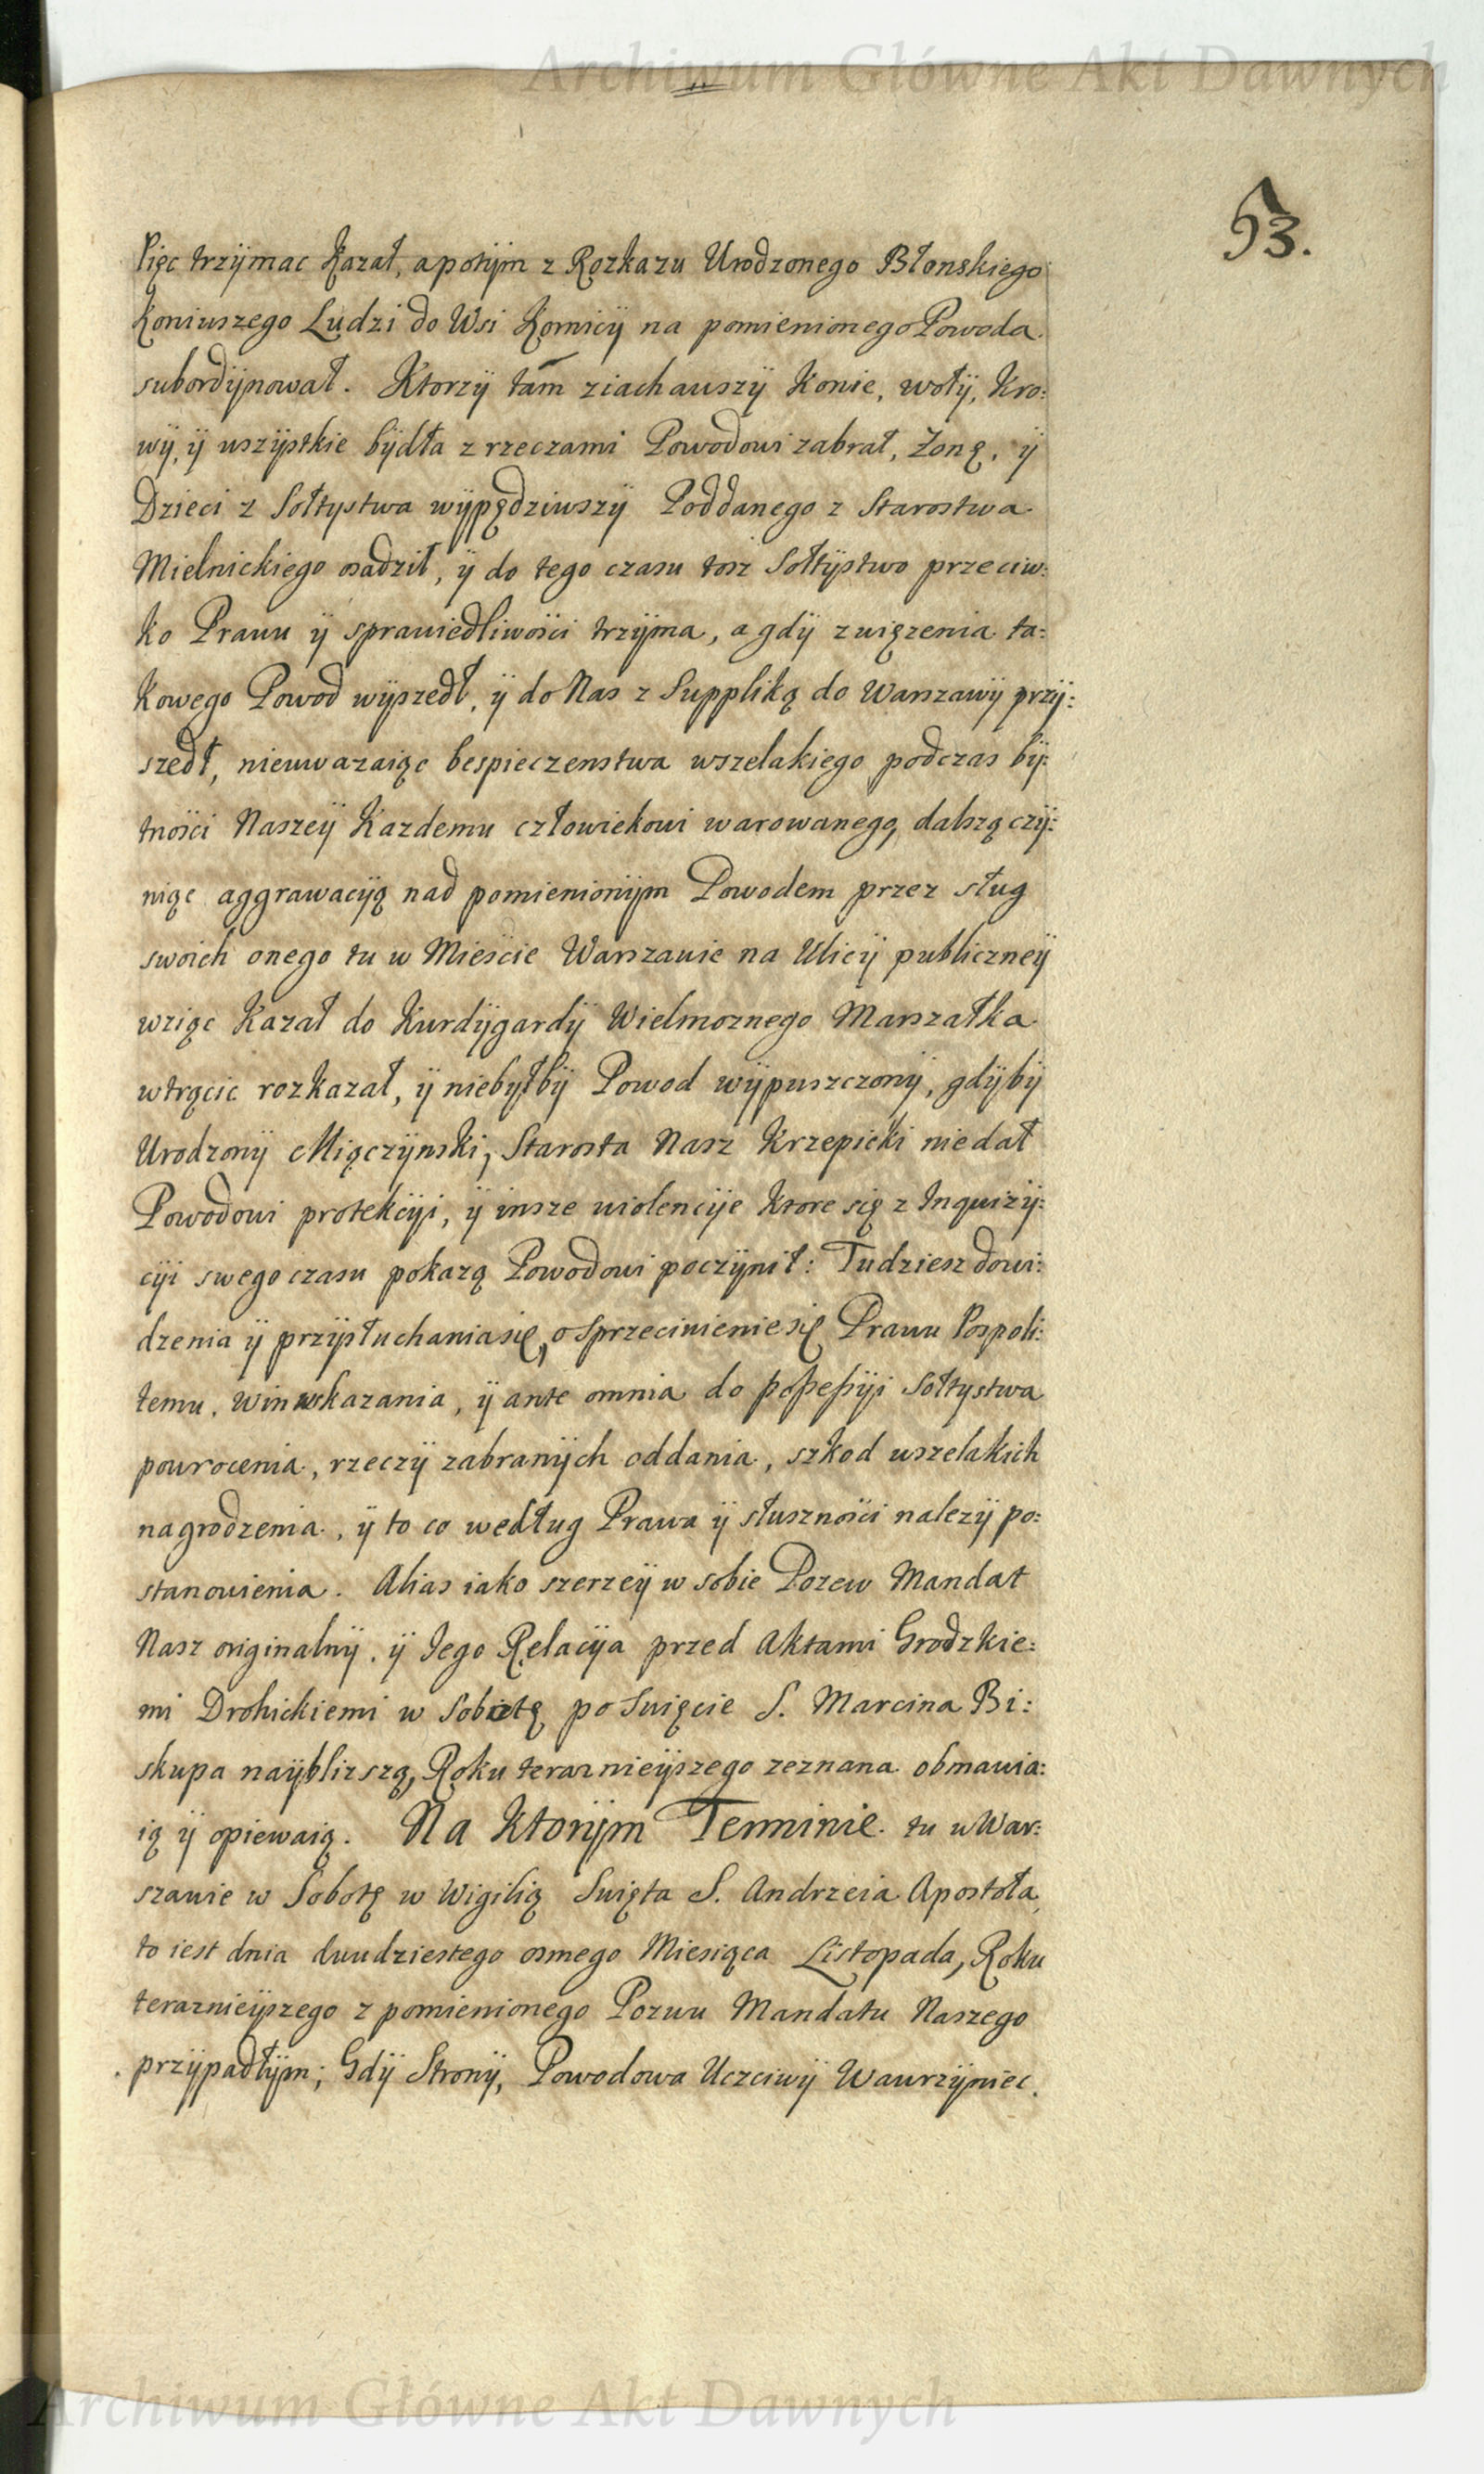 Archiwum Główne Akt Dawnych
53.
Pięc trzÿmac Kazał, apotÿm z Rozkazu Urodzonego Błonskiego
Koniuszego Ludzi do Wsi Kornicÿ na pomienionego Powoda
subordÿnował. Ktorzÿ tam ziachawszÿ Konie, wołÿ, Kro:
wÿ, ÿ wszÿstkie bÿdła z rzeczami Powodowi zabrał, Żonę, ÿ
Dzieci z Sołtystwa wÿpędziwszÿ Poddanego z Starostwa
Mielnickiego osadził, ÿ do tego czasu tosz Sołtÿstwo przeciw:
ko Prawu ÿ sprawiedliwości trzÿma, a gdÿ z więzenia ta:
kowego Powod wÿszedł, ÿ do Nas z Suppliką do Warszawÿ przÿ:
szedł, nieuwazaiąc bespieczenstwa wszelakiego podczas bÿ:
tności Naszeÿ Kazdemu człowiekowi warowanego, dalszą czÿ:
niąc aggrawacÿą nad pomienionÿm Powodem przez sług
swoich onego tu w Mieście Warszawie na Ulicÿ publiczneÿ
wziąc Kazał do Kurdÿgardÿ Wielmoznego Marszałka
wtrącic rozkazał, ÿ niebÿłbÿ Powod wÿpuszczonÿ, gdÿbÿ
Urodzonÿ Miączÿnski, Starosta Nasz Krzepicki niedał
Powodowi protekcÿi, ÿ insze violencÿe ktore się z Inquizÿ:
cÿi swego czasu pokazą Powodowi poczÿnił: Tudziesz dowi:
dzenia ÿ przÿsłuchania się, o sprzeciwienie się Prawu Pospoli:
temu, win wskazania, ÿ ante omnia do possessÿi Sołtystwa
powrocenia, rzeczÿ zabranÿch oddania, szkod wszelakich
nagrodzenia, ÿ to co według Prawa ÿ słuszności nalezÿ po:
stanowienia. Alias iako szerzeÿ w sobie Pozew Mandat
Nasz originalnÿ, ÿ Iego Relacÿa przed Aktami Grodzkie:
mi Drohickiemi w Sobotę po Swięcie S. Marcina Bi:
skupa naÿblizszą, Roku teraznieÿszego zeznana obmawia:
ią ÿ opiewaią. Na Ktorÿm Terminie tu w War:
szawie w Sobotę w Wigilią Swięta S. Andrzeia Apostoła,
to iest dnia dwudziestego osmego Miesiąca Listopada, Roku
teraznieÿszego z pomienionego Pozwu Mandatu Naszego
przÿpadłÿm; Gdÿ Stronÿ, Powodowa Uczciwÿ Wawrzÿniec
Archiwum Główne Akt Dawnych